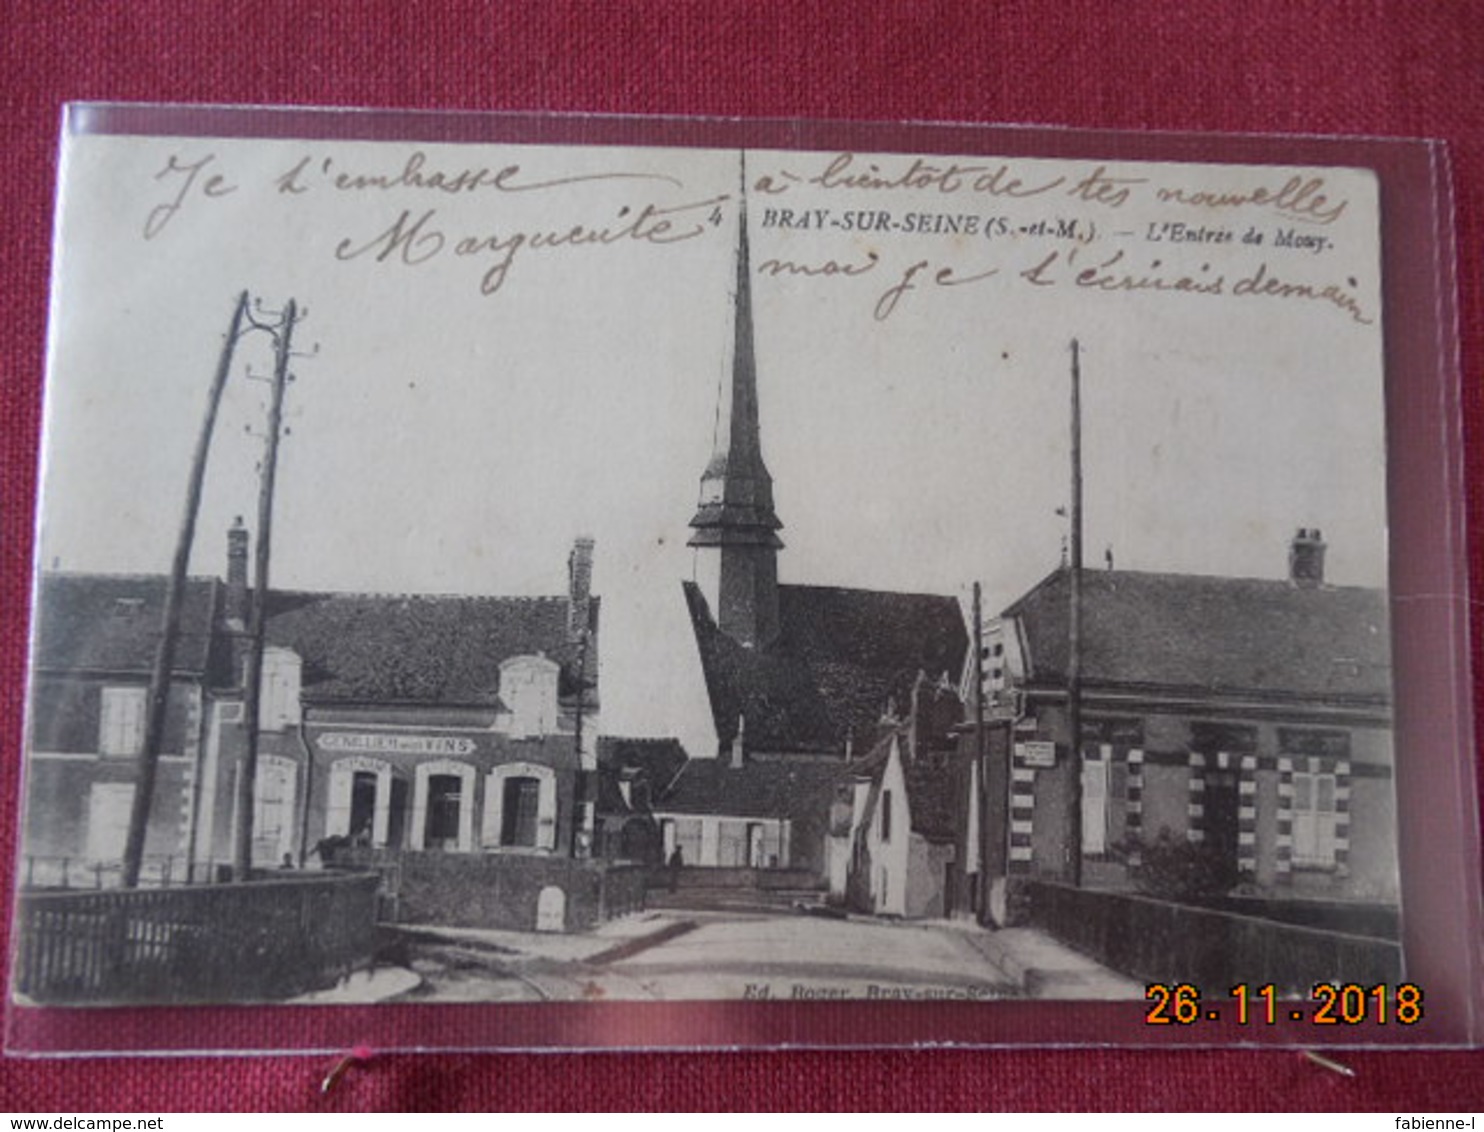 Je t'embrasse
Marguerite
à bientôt de tes nouvelles
4 BRAY-SUR-SEINE (S.-et-M.). — L'Entrée de Mouy.
moi je t'écrirais demain
VINS
Ed. Roger, Bray-sur-Seine
26.11.2018
delcampe.net
fabienne-l